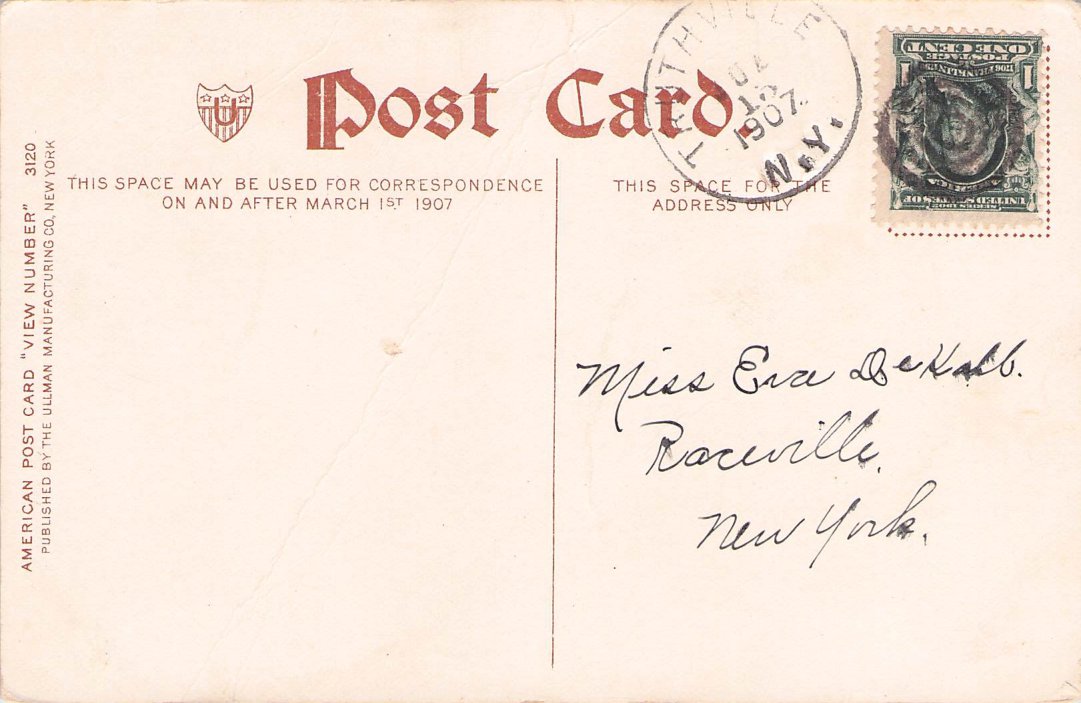 U
Post Card.
THIS SPACE MAY BE USED FOR CORRESPONDENCE
ON AND AFTER MARCH 1ST 1907
THIS SPACE FOR THE
ADDRESS ONLY
TRUTHVILLE
1907
N.Y.
1 1
POSTAGE
ONE CENT
SERIES 1902
UNITED STATES OF
AMERICA
Miss Eva DeKalb.
Raceville,
New York.
AMERICAN POST CARD "VIEW NUMBER" 3120
PUBLISHED BY THE ULLMAN MANUFACTURING CO, NEW YORK